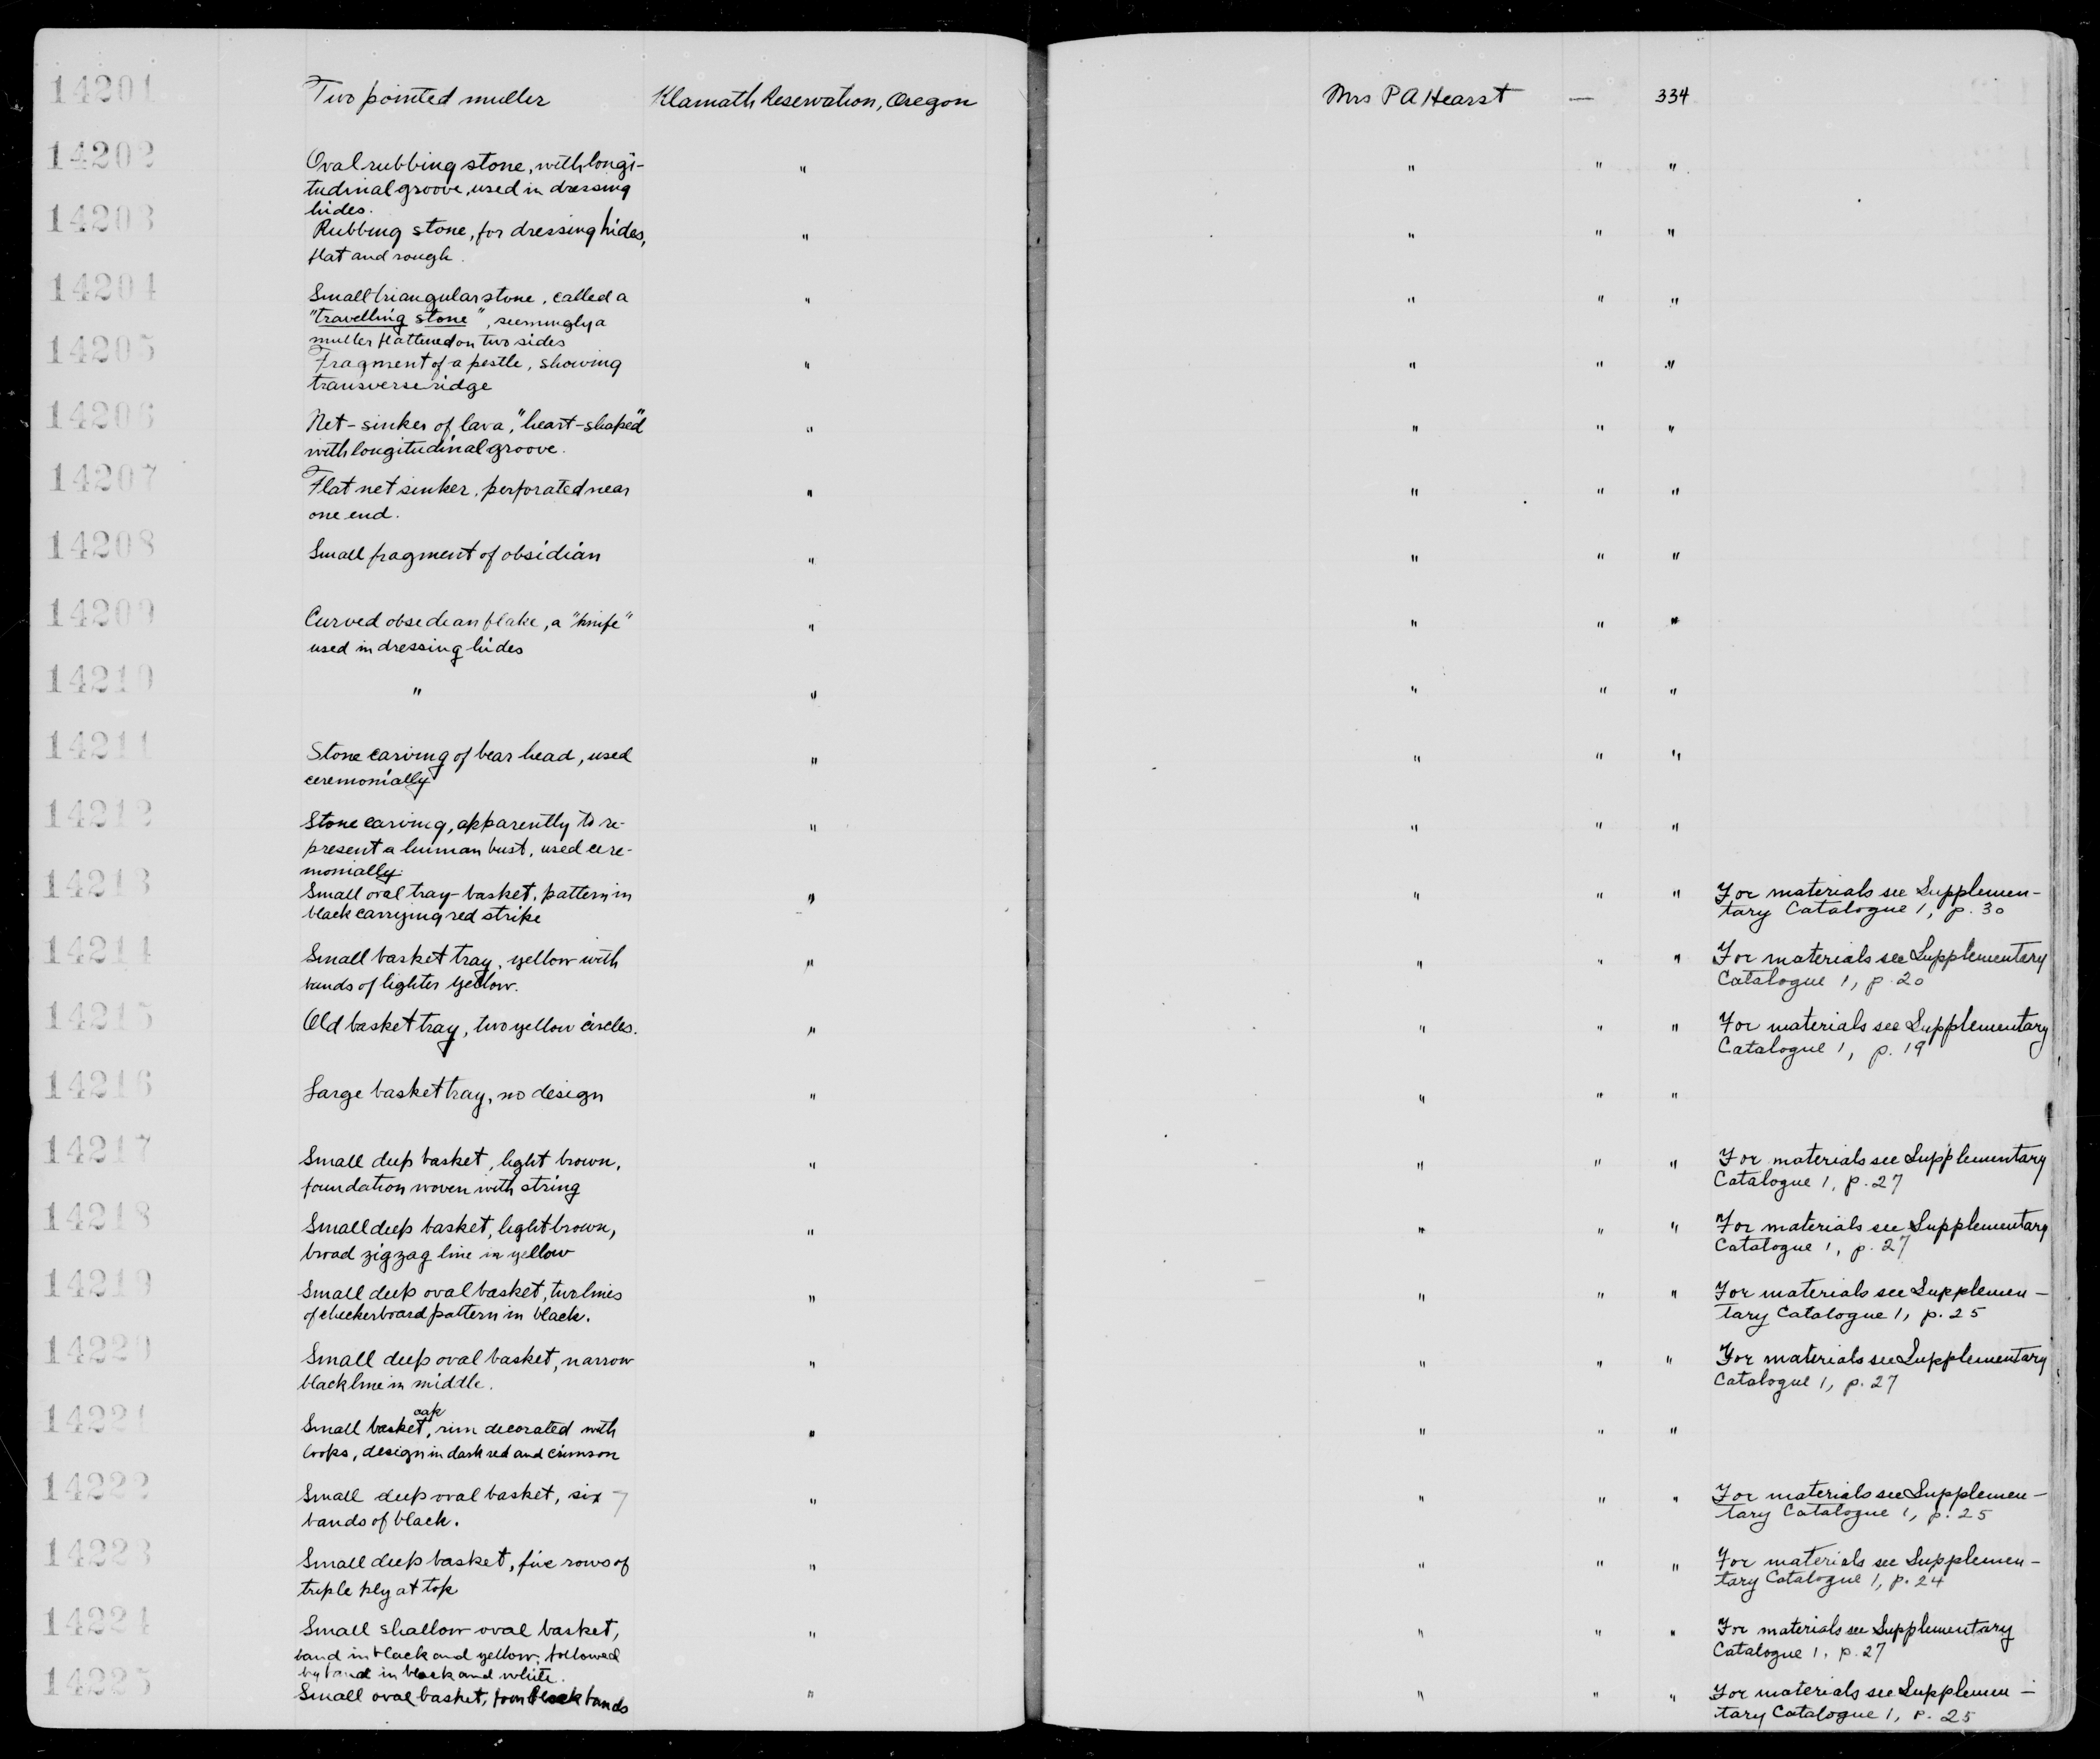 14201 Two pointed muller Klamath Reservation, Oregon Mrs P A Hearst — 334
14202 Oval rubbing stone, with longi- " " " "
tudinal groove, used in dressing
hides.
14203 Rubbing stone, for dressing hides, " " " "
flat and rough.
14204 Small triangular stone, called a " " " "
"travelling stone", seemingly a
muller flattened on two sides
14205 Fragment of a pestle, showing " " " "
transverse ridge
14206 Net-sinker of lava, "heart-shaped" " " " "
with longitudinal groove.
14207 Flat net sinker, perforated near " " " "
one end.
14208 Small fragment of obsidian " " " "
14209 Curved obsedean flake, a "knife" " " " "
used in dressing hides
14210 " " " " "
14211 Stone carving of bear head, used " " " "
ceremonially
14212 Stone carving, apparently to re- " " " "
present a human bust, used cere-
monially.
14213 Small oval tray-basket, pattern in " " " " For materials see Supplemen-
black carrying red strike tary Catalogue 1, p. 30
14214 Small basket tray, yellow with " " " " For materials see Supplementary
bands of lighter yellow. Catalogue 1, p. 20
14215 Old basket tray, two yellow circles. " " " " For materials see Supplementary
Catalogue 1, p. 19
14216 Large basket tray, no design " " " "
14217 Small deep basket, light brown, " " " " For materials see Supplementary
foundation woven with string Catalogue 1, p. 27
14218 Small deep basket, light brown, " " " " For materials see Supplementary
broad zigzag line in yellow Catalogue 1, p. 27
14219 Small deep oval basket, two lines " " " " For materials see Supplemen-
of checkerboard pattern in black. tary Catalogue 1, p. 25
14220 Small deep oval basket, narrow " " " " For materials see Supplementary
black line in middle. Catalogue 1, p. 27
14221 Small basket cap, rim decorated with " " " "
loops, design in dark red and crimson
14222 Small deep oval basket, six 7 " " " " For materials see Supplemen-
bands of black. tary Catalogue 1, p. 25
14223 Small deep basket, five rows of " " " " For materials see Supplemen-
triple ply at top tary Catalogue 1, p. 24
14224 Small shallow oval basket, " " " " For materials see Supplementary
band in black and yellow, followed Catalogue 1, p. 27
by band in black and white.
14225 Small oval basket, four black bands " " " " For materials see Supplemen-
tary Catalogue 1, p. 25